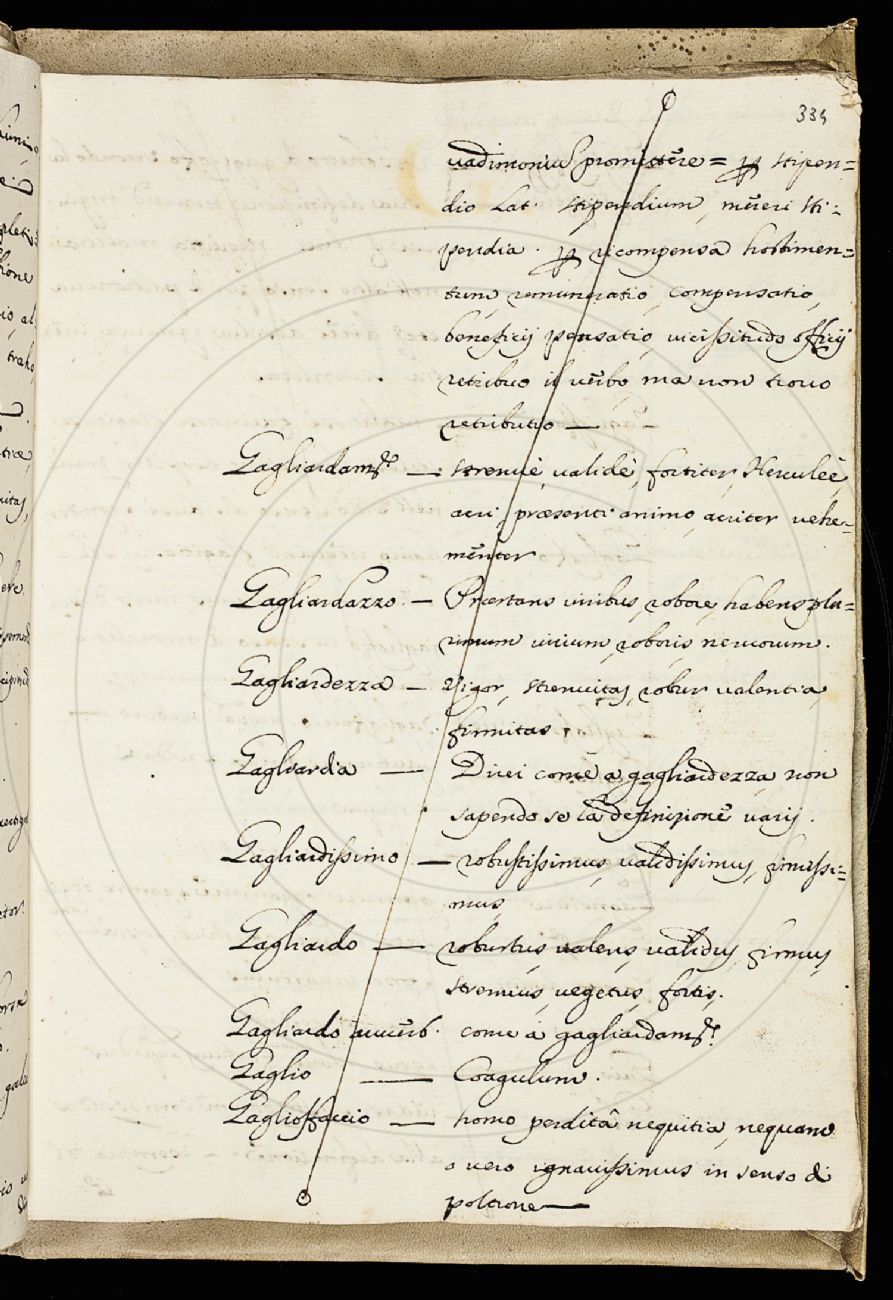 334
vadimonium promittere = ꝑ stipen=
dio Lat. stipendium, mereri sti=
pendia. ꝑ ricompensa hostimen=
tum, remuneratio, compensatio,
beneficij pensatio, vicissitudo officij
retribuo il verbo, ma non trovo
retributio —
Gagliardamᵗᵉ — strenuè, validè, fortiter, Herculeè,
acri, præsenti animo, acriter vehe=
menter
Gagliardazzo — Præstans viribus, robore, habens plu=
rimum virium, roboris, nervorum.
Gagliardezza — Vigor, strenuitas, robur, valentia,
firmitas.
Gagliardia — Dicei come a gagliardezza, non
sapendo se la definizione varij.
Gagliardissimo — robustissimus, validissimus, firmissi=
mus,
Gagliardo — robustus, valens, validus, firmus,
strenuus, vegetus, fortis.
Gagliardo avverb. come à gagliardamᵗᵉ
Gaglio — Coagulum.
Gaglioffaccio — homo perditâ nequitia, nequam
o vero ignavissimus in senso di
poltrone —